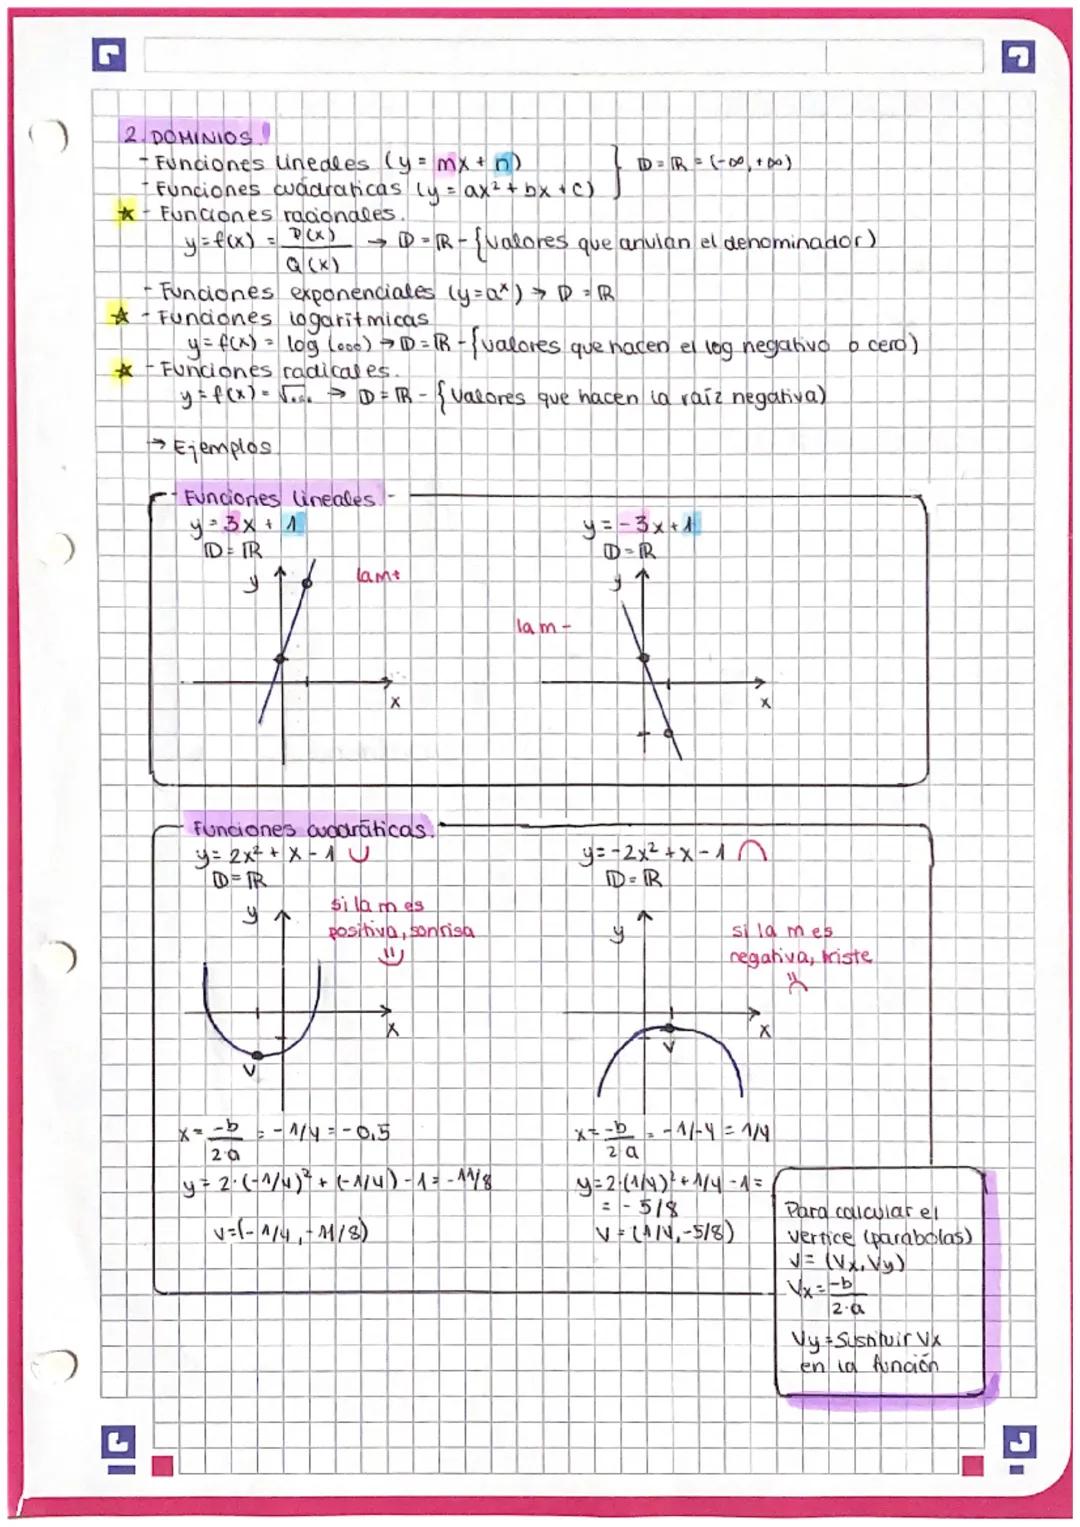 2. DOMINIOS.
- Funciones lineales (y = mx + n) } D = R = (-∞, +∞)
- Funciones cuádraticas (y = ax² + bx + c)
☆ - Funciones racionales.
y = f(x) = P(x) / Q(x) → D = R - {valores que anulan el denominador)
- Funciones exponenciales (y = aˣ) → D = R
☆ - Funciones logaritmicas
y = f(x) = log (...) → D = R - {valores que hacen el log negativo o cero)
☆ - Funciones radicales.
y = f(x) = √... → D = R - {Valores que hacen la raíz negativa)
→ Ejemplos
- Funciones lineales. -
y = 3x + 1
D = R
y
la m+
x
y = -3x + 1
D = R
y
la m -
x
Funciones cuadráticas.
y = 2x² + x - 1 ∪
D = R
y
si la m es
positiva, sonrisa
x
V
x = -b / 2·a = -1/4 = -0,5
y = 2·(-1/4)² + (-1/4) - 1 = -11/8
V = (-1/4, -11/8)
y = -2x² + x - 1 ∩
D = R
y
si la m es
negativa, triste
x
V
x = -b / 2·a = -1/-4 = 1/4
y = 2·(1/4)² + 1/4 - 1 =
= -5/8
V = (1/4, -5/8)
Para calcular el
vertice (parabolas)
V = (Vx, Vy)
Vx = -b / 2·a
Vy = Sustituir Vx
en la función